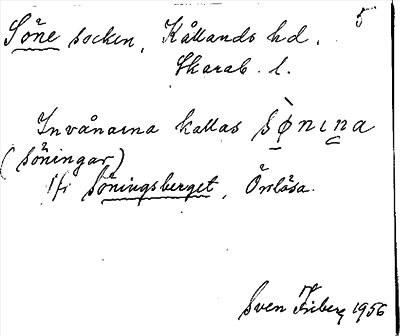 Söne socken, Kållands hd. 5
Skarab. l.
Invånarna kallas sø̀nɩna
(söningar)
Jfr Söningsberget, Örslösa.
Sven Friberg 1956